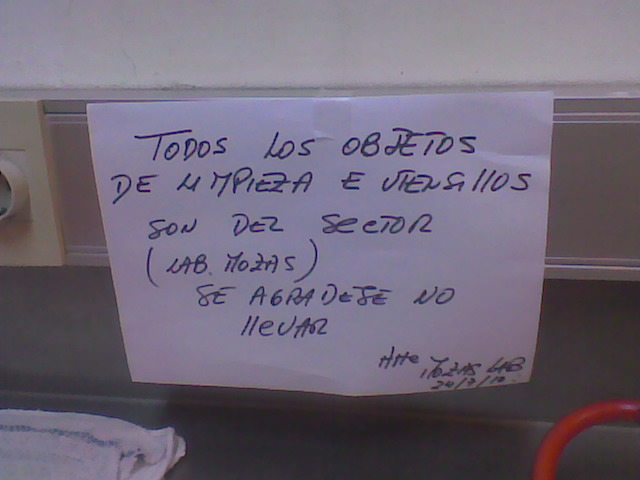 TODOS LOS OBJETOS
DE LIMPIEZA E UTENSILIOS
SON DEL SECTOR
(LAB. MOZAS)
SE AGRADESE NO
llEVAR
Atte MOZAS LAB